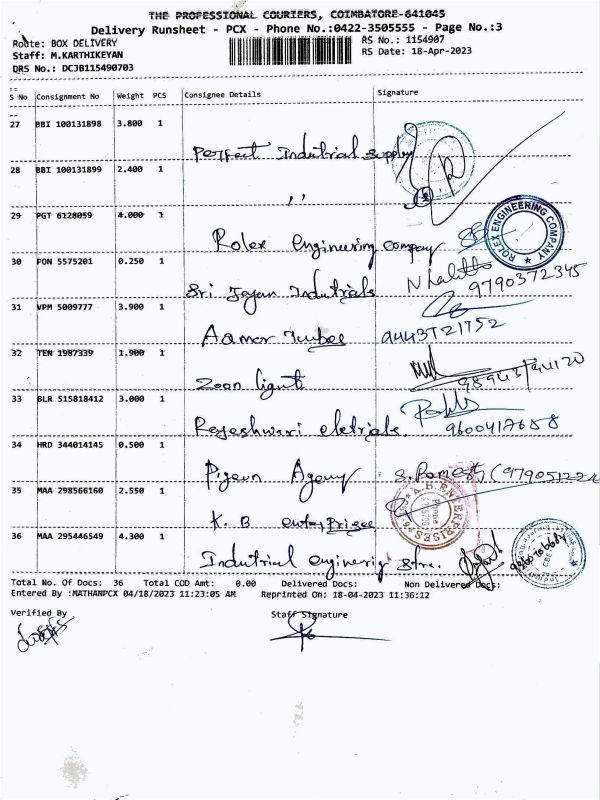 THE PROFESSIONAL COURIERS, COIMBATORE-641045
Delivery Runsheet - PCX - Phone No.:0422-3505555 - Page No.:3
Route: BOX DELIVERY
RS No.: 1154907
Staff: M.KARTHIKEYAN
RS Date: 18-Apr-2023
DRS No.: DCJB115490703
S No Consignment No Weight PCS Consignee Details Signature
27 BBI 100131898 3.800 1
Perfect Indutrial Supply
28 BBI 100131899 2.400 1
,,
29 PGT 6128059 4.000 1
Rolex engineering company
ROLEX ENGINEERING COMPANY
30 PON 5575201 0.250 1
Sri Jayan Indutrials
9790372345
31 VPM 5009777 3.900 1
Aamor
9443721752
32 TEN 1987339 1.900 1
Zoon
33 BLR 515818412 3.000 1
Rajeshwari eletrials.
9600417658
34 HRD 344014145 0.500 1
Pigeon Agency S. Ramesh (97905122
35 MAA 298566160 2.550 1
K. B enterprises
A.B. ENTERPRISES
36 MAA 295446549 4.300 1
Industrial enginerig Stre.
Total No. Of Docs: 36 Total COD Amt: 0.00 Delivered Docs: Non Delivered Docs:
Entered By :MATHANPCX 04/18/2023 11:23:05 AM Reprinted On: 18-04-2023 11:36:12
Verified By Staff Signature